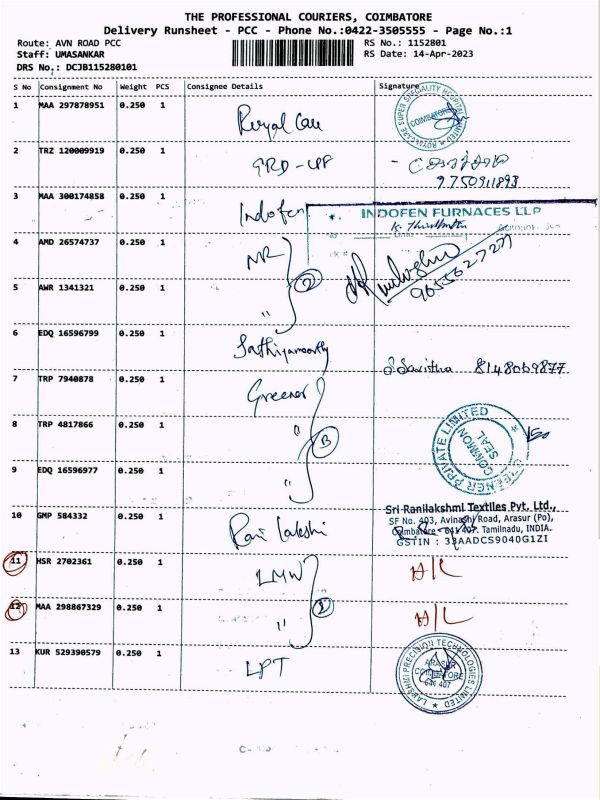 THE PROFESSIONAL COURIERS, COIMBATORE
Delivery Runsheet - PCC - Phone No.:0422-3505555 - Page No.:1
Route: AVN ROAD PCC RS No.: 1152801
Staff: UMASANKAR RS Date: 14-Apr-2023
DRS No.: DCJB115280101
S No Consignment No Weight PCS Consignee Details Signature
1 MAA 297878951 0.250 1 Royal Care ROYALCARE SUPER SPECIALITY HOSPITAL LIMITED COIMBATORE
2 TRZ 120009919 0.250 1
9750911893
3 MAA 300174858 0.250 1 Indofen INDOFEN FURNACES LLP
4 AMD 26574737 0.250 1 MR 2
9655627271
5 AWR 1341321 0.250 1 "
6 EDQ 16596799 0.250 1 Sathiyamoorthy S. Savitha 8148069877
7 TRP 7940878 0.250 1 Greener
8 TRP 4817866 0.250 1 " 3 GREENER PRIVATE LIMITED COMMON SEAL
9 EDQ 16596977 0.250 1 "
10 GMP 584332 0.250 1 Rani Lakshi Sri Ranilakshmi Textiles Pvt. Ltd.,
SF No. 403, Avinashi Road, Arasur (Po),
Coimbatore - 641 407. Tamilnadu, INDIA.
GSTIN : 33AADCS9040G1ZI
11 HSR 2702361 0.250 1 LMW A/L
12 MAA 298867329 0.250 1 " 2 A/L
13 KUR 529390579 0.250 1 LPT LAKSHMI PRECISION TECHNOLOGIES LIMITED ARASUR COIMBATORE 641 407